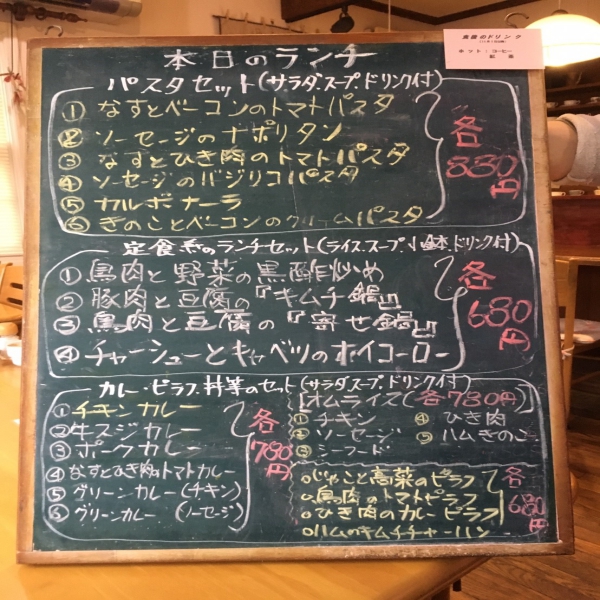 食後のドリンク
ホット:コーヒー
紅茶
本日のランチ
パスタセット(サラダ、スープ、ドリンク付)
① なすとベーコンのトマトパスタ
② ソーセージのナポリタン
③ なすとひき肉のトマトパスタ
④ ソーセージのバジリコパスタ
⑤ カルボナーラ
⑥ きのことベーコンのクリームパスタ
各830円
定食系のランチセット(ライス、スープ、小鉢、ドリンク付)
① 鳥肉と野菜の黒酢炒め
② 豚肉と豆腐の『キムチ鍋』
③ 鳥肉と豆腐の『寄せ鍋』
④ チャーシューとキャベツのホイコーロー
各680円
カレー・ピラフ、丼等のセット(サラダ、スープ、ドリンク付)
① チキンカレー
② 牛スジカレー
③ ポークカレー
④ なすとひき肉のトマトカレー
⑤ グリーンカレー(チキン)
⑥ グリーンカレー(ソーセージ)
各780円
[オムライス(各780円)
① チキン ④ ひき肉
② ソーセージ ⑤ ハムきのこ
③ シーフード
○じゃこと高菜のピラフ
○鳥肉のトマトピラフ
○ひき肉のカレーピラフ
○ハムのキムチチャーハン
各680円